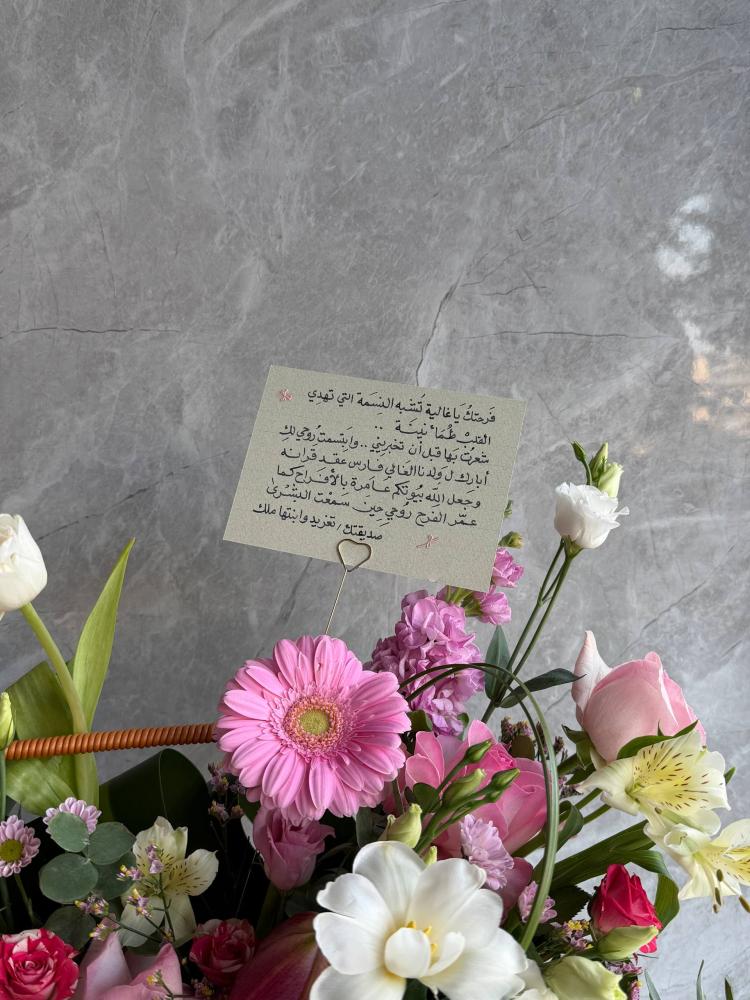 فَرحتكُ يَا غالية تُشبه النِسَمة التي تهدِي
القلبْ طُمَأنينَة ..
شعرتُ بهَا قبل أن تخبريني .. وابتسمتْ رُوحي لكِ
أبارك ل ولدنا الغَالي فَارس عقد قرانه
وجعل الله بُيوتكم عَامرة بالأفراح كما
عمّر الفرح روحي حِين سَمعْت البشْرىٰ
صديقتكِ / تغريد وابنتها ملك